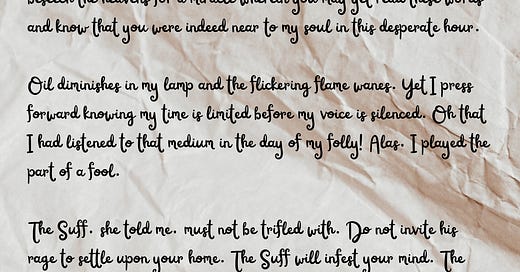 beseech the heavens for a miracle whereby you may yet read these words
and know that you were indeed near to my soul in this desperate hour.
Oil diminishes in my lamp and the flickering flame wanes. Yet I press
forward knowing my time is limited before my voice is silenced. Oh that
I had listened to that medium in the day of my folly! Alas. I played the
part of a fool.
The Suff. she told me. must not be trifled with. Do not invite his
rage to settle upon your home. The Suff will infest your mind. The